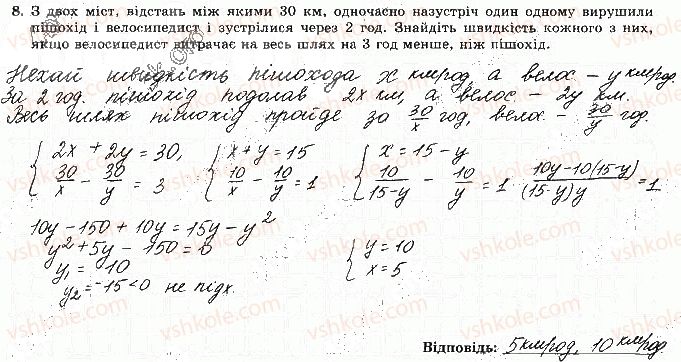 8. З двох міст, відстань між якими 30 км, одночасно назустріч один одному вирушили
пішохід і велосипедист і зустрілися через 2 год. Знайдіть швидкість кожного з них,
якщо велосипедист витрачає на весь шлях на 3 год менше, ніж пішохід.
Нехай швидкість пішохода x км/год, а велос – y км/год.
За 2 год. пішохід подолав 2x км, а велос – 2y км.
Весь шлях пішохід пройде за 30/x год, велос – 30/y год.
{ 2x + 2y = 30, { x + y = 15 { x = 15 - y
30/x - 30/y = 3 10/x - 10/y = 1 10/(15-y) - 10/y = 1 (10y - 10(15-y))/((15-y)y) = 1
10y - 150 + 10y = 15y - y²
y² + 5y - 150 = 0
y₁ = 10
y₂ = -15 < 0 не підх.
{ y = 10
x = 5
Відповідь: 5 км/год, 10 км/год.
vshkole.com